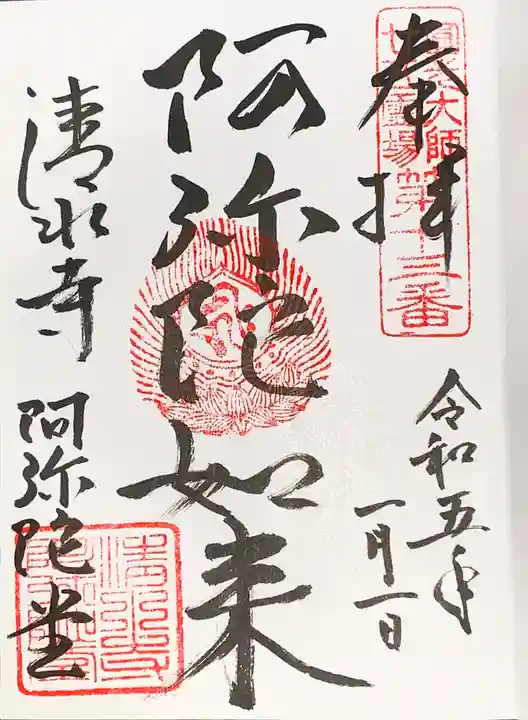 奉拝
圓光大師
廿五霊場
第十三番
令和五年
一月一日
阿弥陀如来
清水寺 阿弥陀堂